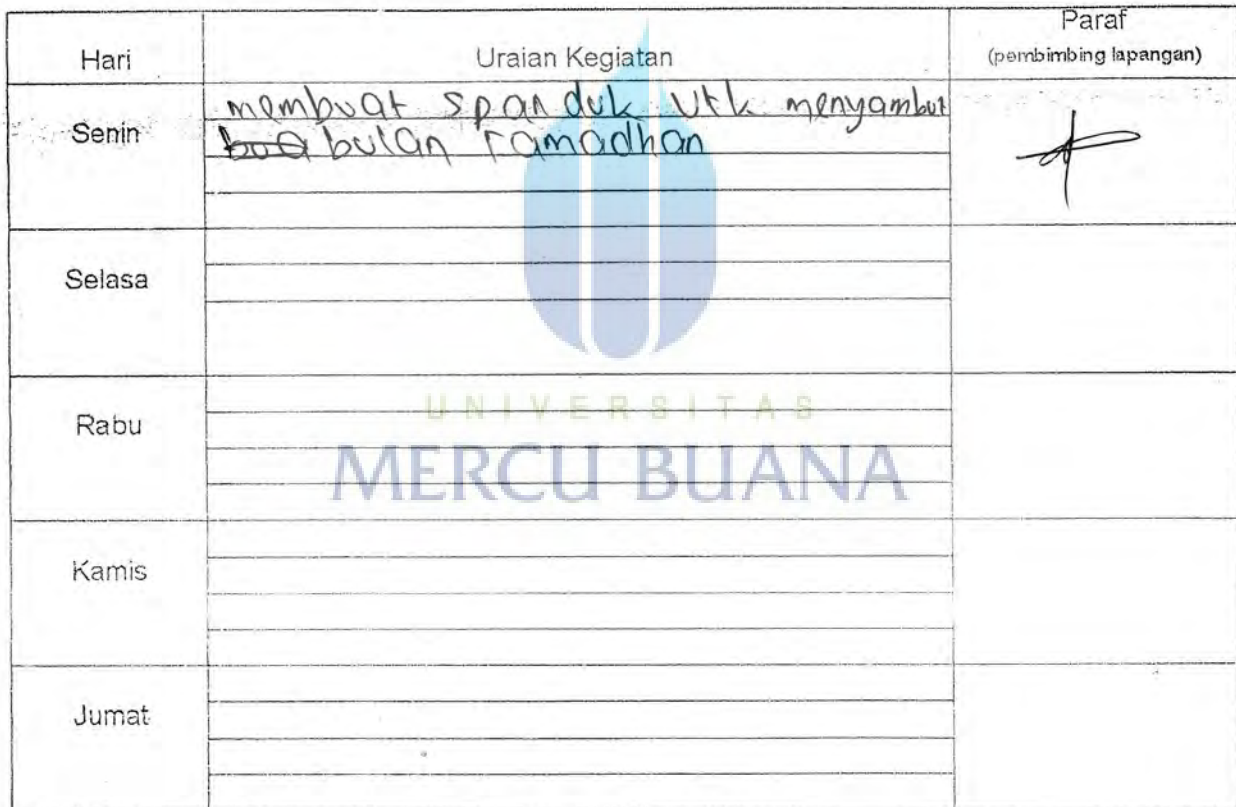 Hari Uraian Kegiatan Paraf
(pembimbing lapangan)
Senin membuat spanduk utk menyambut
bulan ramadhan
Selasa
Rabu
UNIVERSITAS
MERCU BUANA
Kamis
Jumat